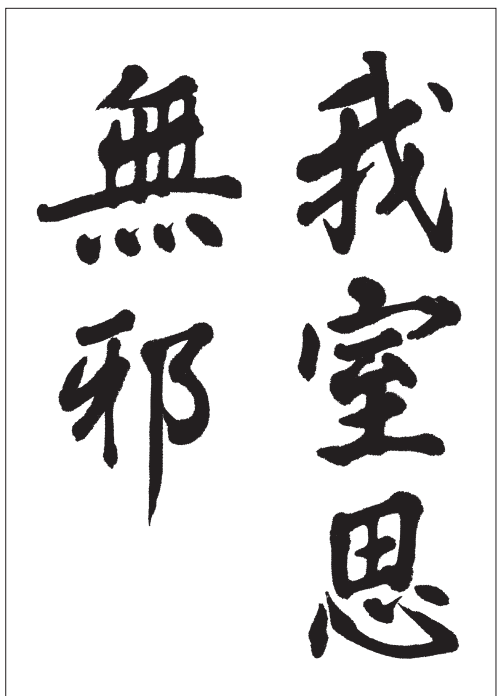 我室思
無邪